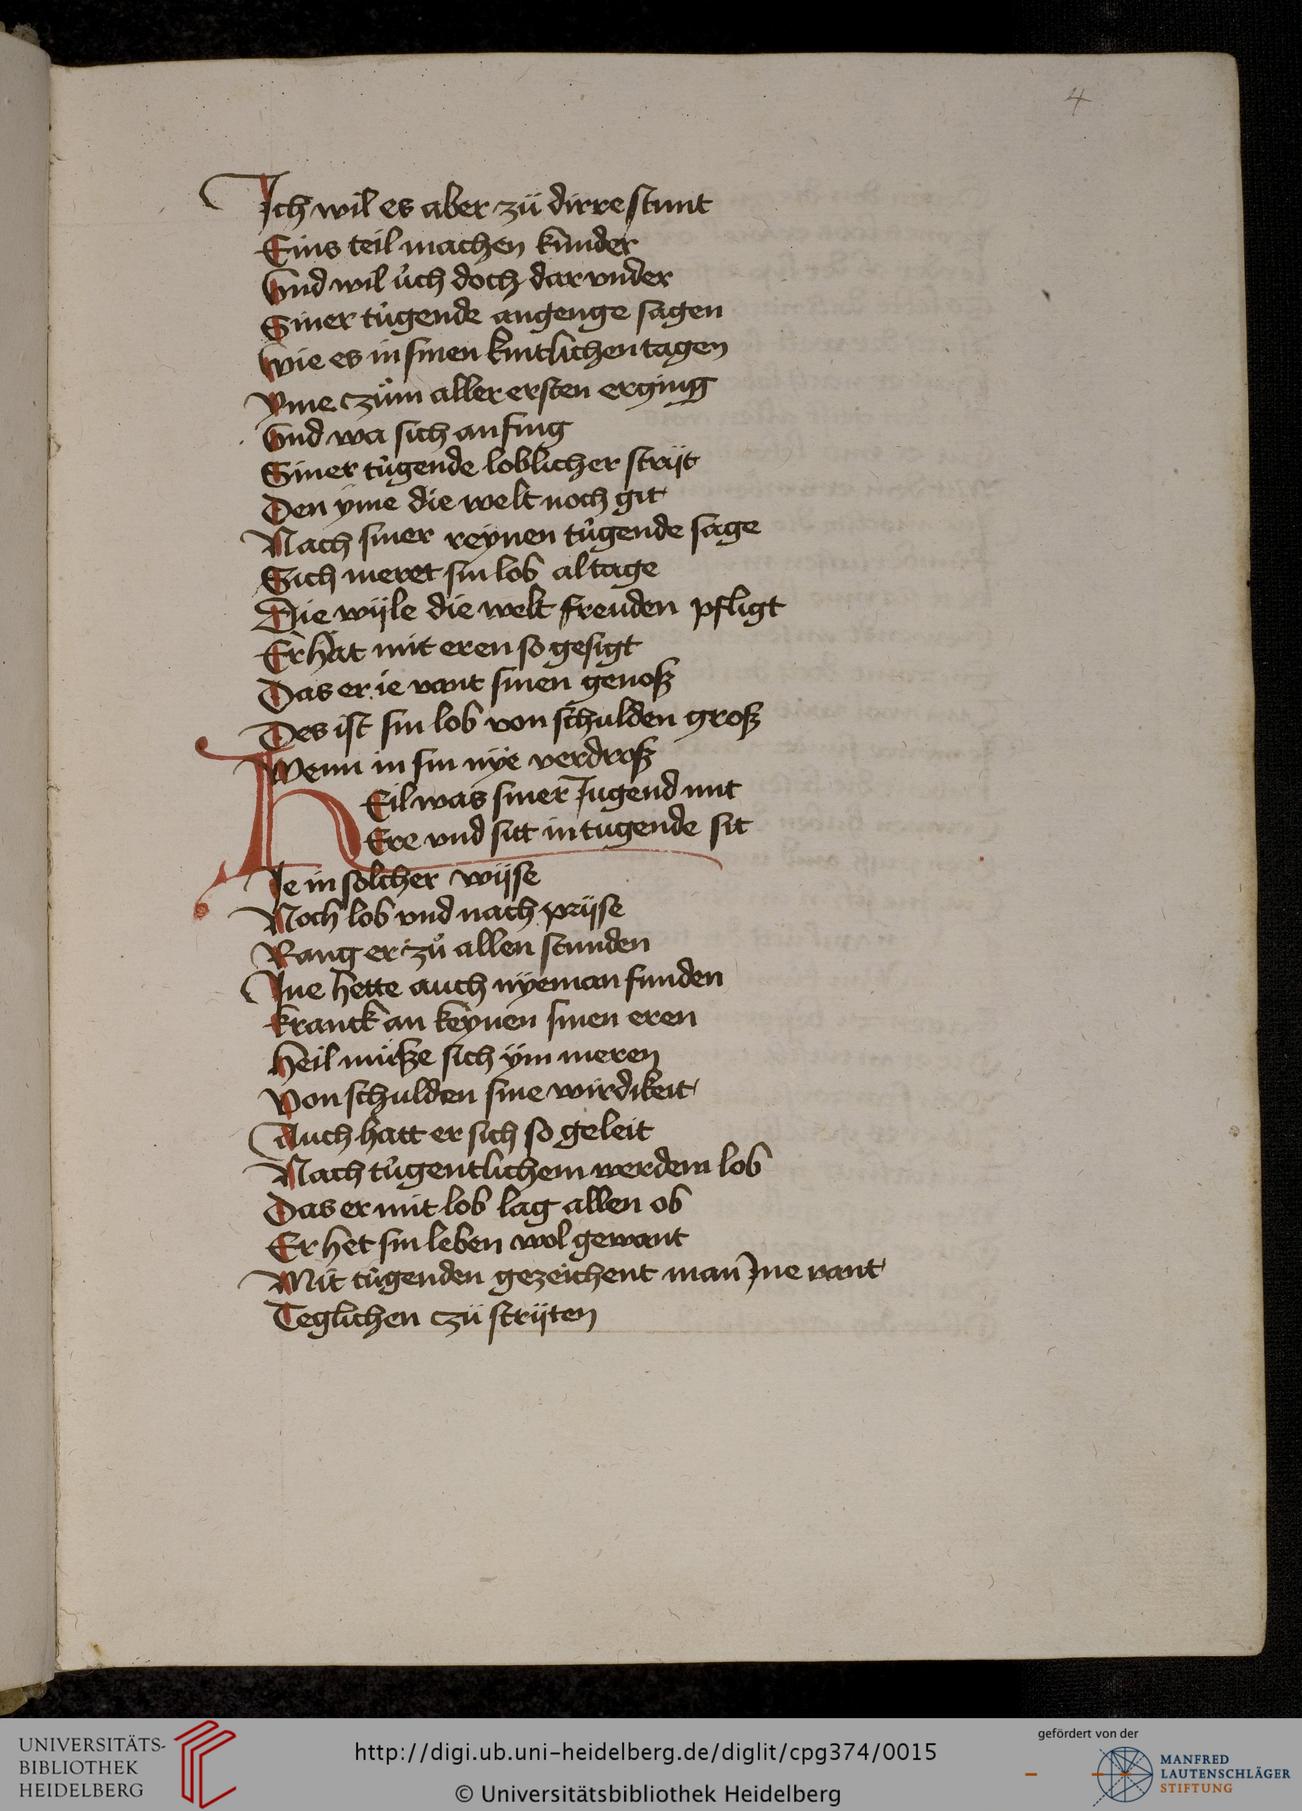 4
Ich wil es aber zü dirre stunt
Eins teil machen kunder
Vnd wil uch doch dar vnder
Siner tügende angenge sagen
Wie es in sinen kintlichen tagen
Yme czům aller ersten erging
Vnd wa sich an fing
Siner tügende loblicher strijt
Den yme die welt noch git
Nach siner reynen tügende sage
Sich meret sin lob al tage
Die wijle die welt freuden pfligt
Er hat mit eren so gesigt
Das er ie vant sinen genosz
Des ist sin lob von schulden grosz
Wenn in sin nÿe verdrosz
HEil was siner Jugend mit
Ere vnd sitt in tugende sit
Je in solcher wijse
Noch lob vnd nach prijse
Rang er zů allen stunden
Jne hette auch nÿeman funden
Kranck an keynen sinen eren
Heil müsze sich ÿm meren
Von schulden sine wirdikeit
Auch hatt er sich so geleit
Nach tügentlichem werdem lob
Das er mit lob lag allen ob
Er het sin leben wol gewant
Mit tügenden gezeichent man Jne vant
Teglichen czü strijten
UNIVERSITÄTS-
BIBLIOTHEK
HEIDELBERG
http://digi.ub.uni-heidelberg.de/diglit/cpg374/0015
© Universitätsbibliothek Heidelberg
gefördert von der
MANFRED
LAUTENSCHLÄGER
STIFTUNG